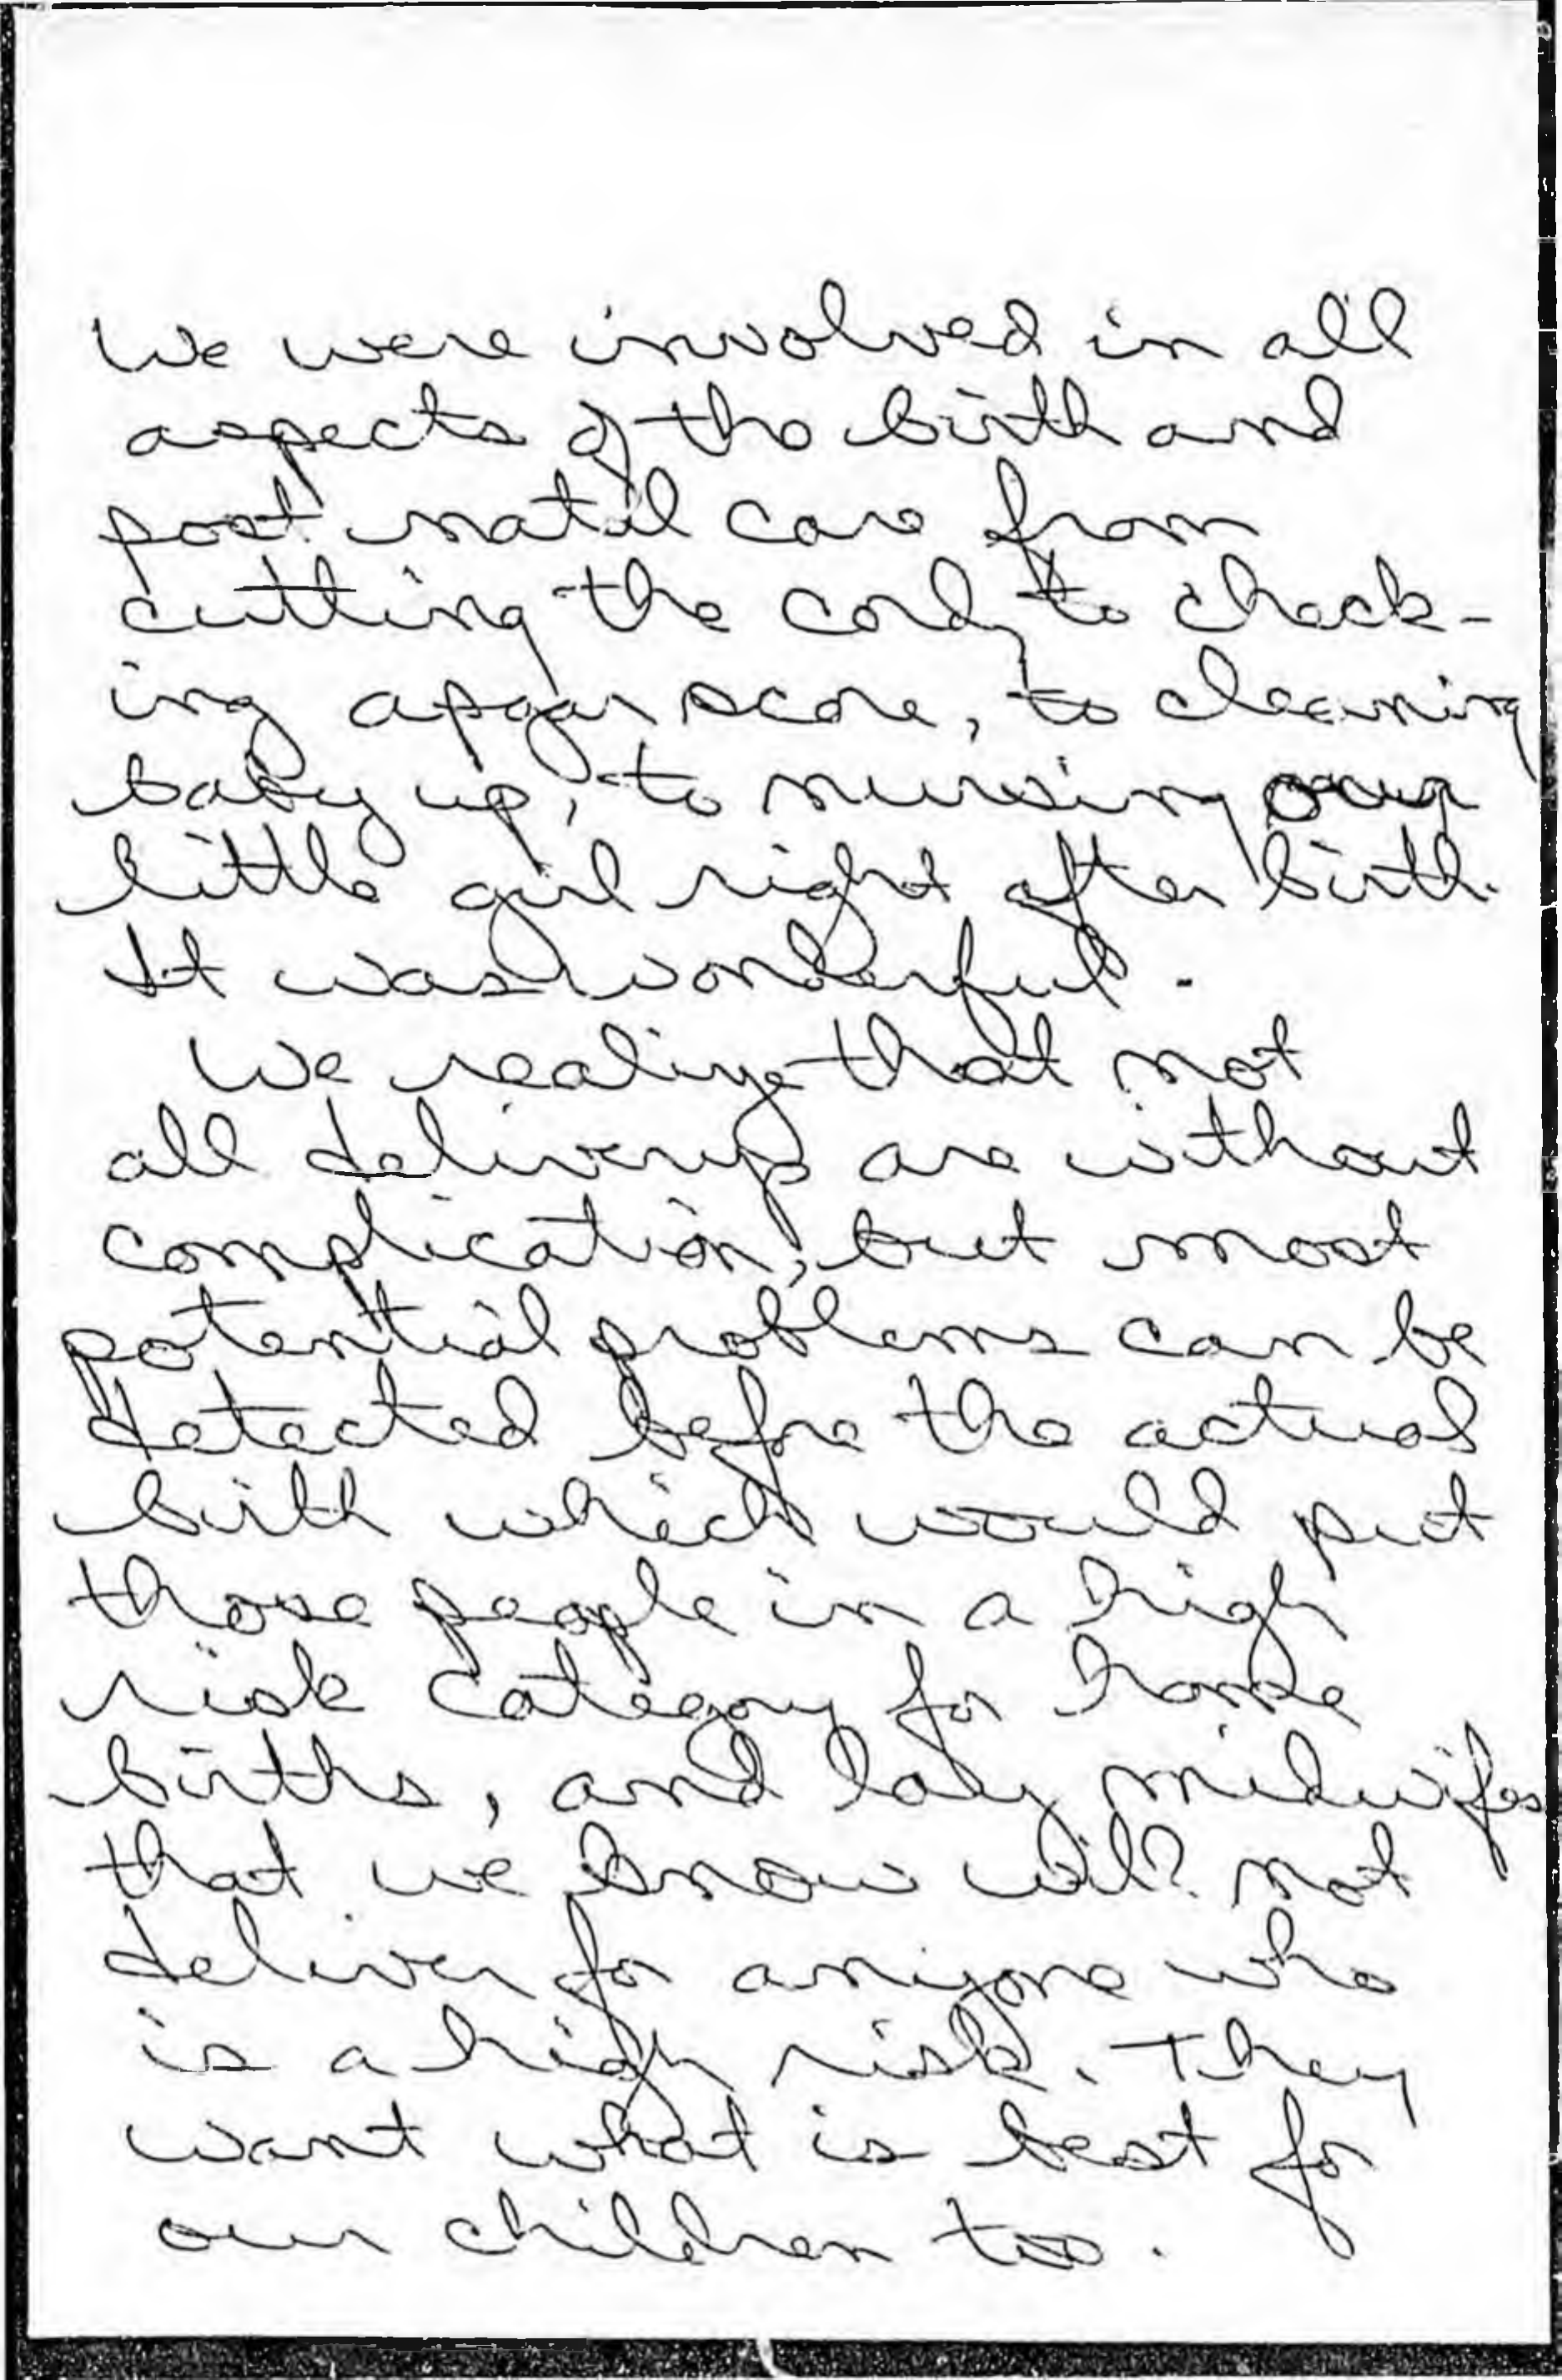 We were involved in all
aspects of the birth and
post natal care from
cutting the cord, to check-
ing apgar score, to cleaning
baby up, to nursing our
little girl right after birth.
It was wonderful.
We realize that not
all deliverys are without
complication, but most
potential problems can be
detected before the actual
birth which would put
those people in a high
risk category for home
births, and lay midwifes
that we know will not
deliver for anyone who
is a high risk. They
want what is best for
our children too.